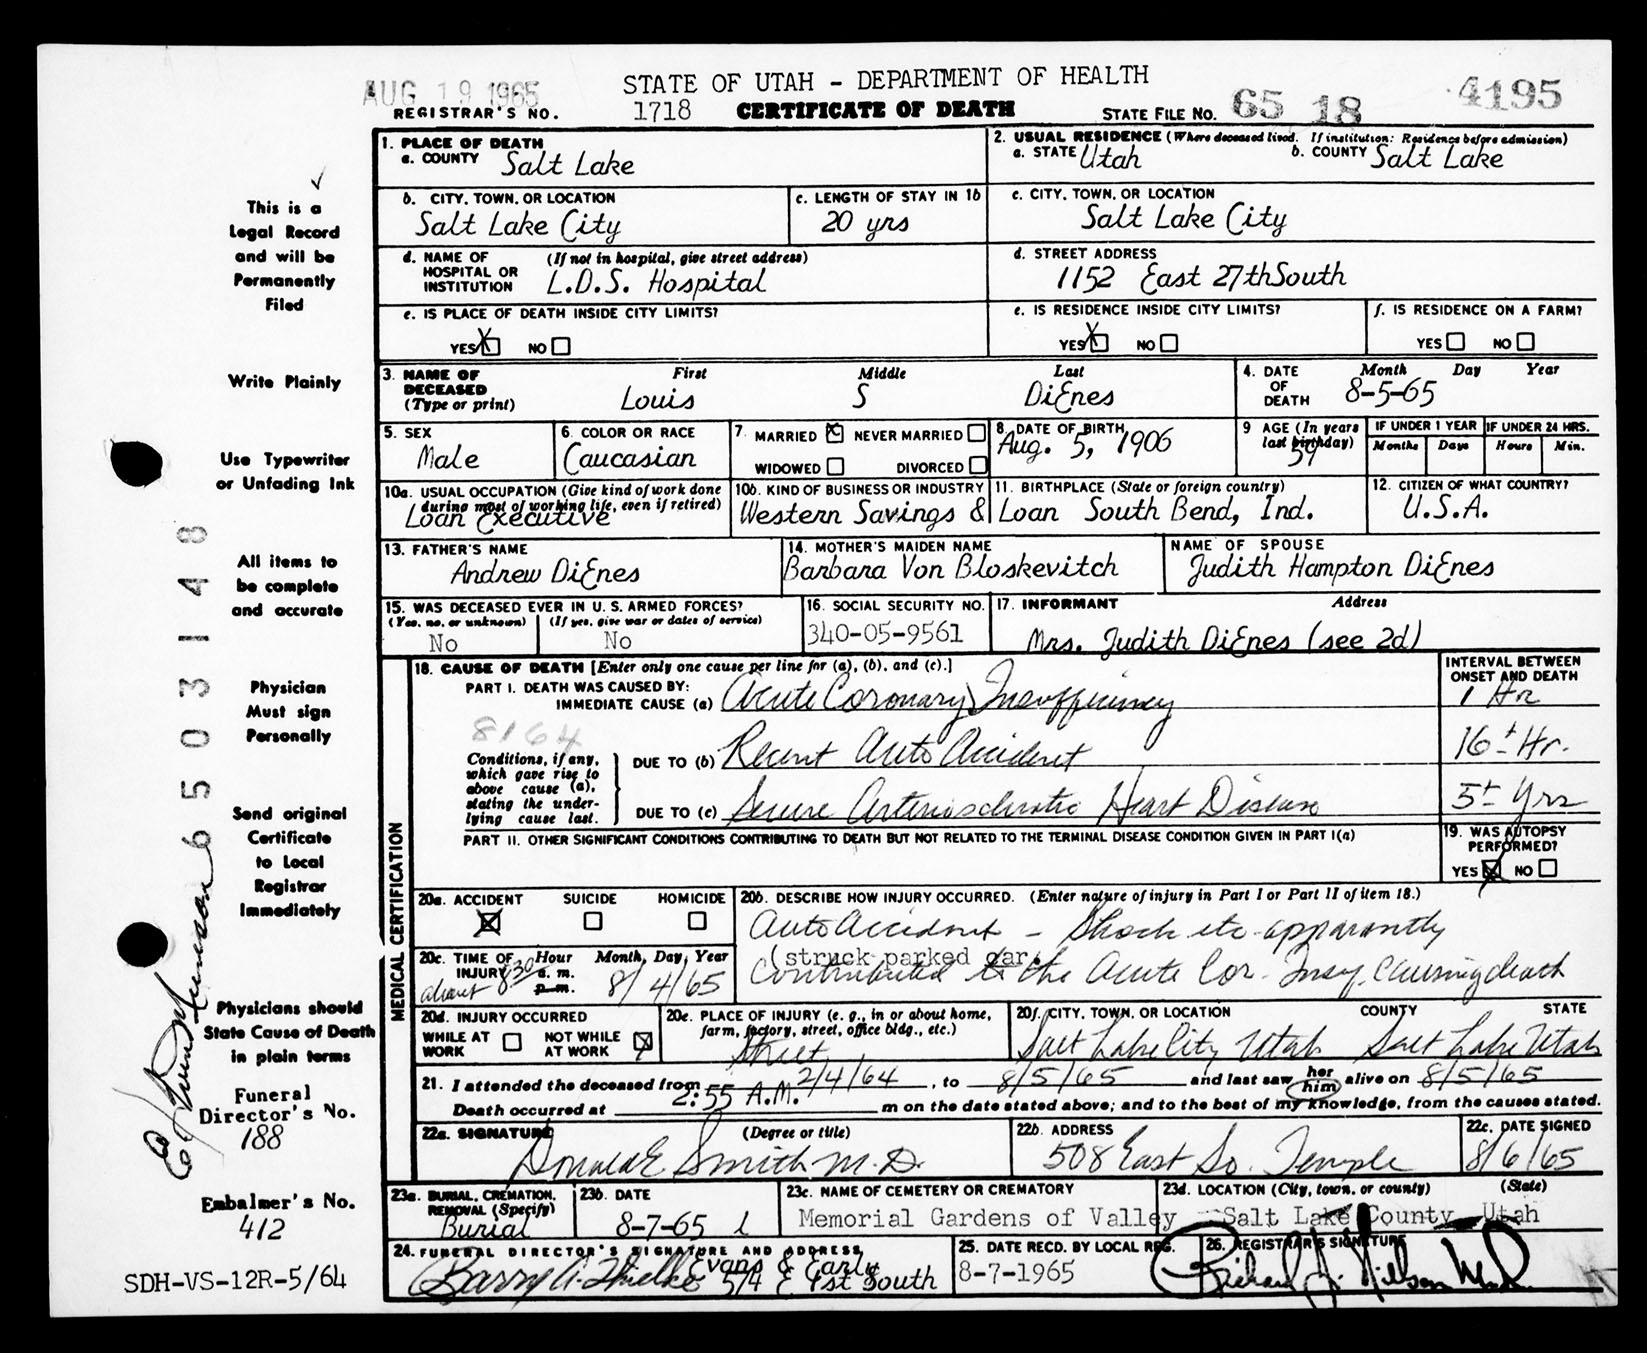 AUG 19 1965
STATE OF UTAH - DEPARTMENT OF HEALTH
REGISTRAR'S NO. 1718 CERTIFICATE OF DEATH STATE FILE NO. 65 18 4195
This is a
Legal Record
and will be
Permanently
Filed
Write Plainly
Use Typewriter
or Unfading Ink
All items to
be complete
and accurate
Physician
Must sign
Personally
Send original
Certificate
to Local
Registrar
Immediately
Physicians should
State Cause of Death
in plain terms
Funeral
Director's No.
188
Embalmer's No.
412
SDH-VS-12R-5/64
6503148
1. PLACE OF DEATH
a. COUNTY Salt Lake
2. USUAL RESIDENCE (Where deceased lived. If institution: Residence before admission)
a. STATE Utah b. COUNTY Salt Lake
b. CITY, TOWN, OR LOCATION
Salt Lake City
c. LENGTH OF STAY IN 1b
20 yrs
c. CITY, TOWN, OR LOCATION
Salt Lake City
d. NAME OF (If not in hospital, give street address)
HOSPITAL OR
INSTITUTION L.D.S. Hospital
d. STREET ADDRESS
1152 East 27thSouth
e. IS PLACE OF DEATH INSIDE CITY LIMITS?
YES X NO
e. IS RESIDENCE INSIDE CITY LIMITS?
YES X NO
f. IS RESIDENCE ON A FARM?
YES NO
3. NAME OF First Middle Last
DECEASED
(Type or print) Louis S DiEnes
4. DATE Month Day Year
OF
DEATH 8-5-65
5. SEX
Male
6. COLOR OR RACE
Caucasian
7. MARRIED X NEVER MARRIED
WIDOWED DIVORCED
8. DATE OF BIRTH
Aug. 5, 1906
9 AGE (In years
last birthday)
59
IF UNDER 1 YEAR IF UNDER 24 HRS.
Months Days Hours Min.
10a. USUAL OCCUPATION (Give kind of work done
during most of working life, even if retired)
Loan Executive
10b. KIND OF BUSINESS OR INDUSTRY
Western Savings & Loan
11. BIRTHPLACE (State or foreign country)
South Bend, Ind.
12. CITIZEN OF WHAT COUNTRY?
U.S.A.
13. FATHER'S NAME
Andrew DiEnes
14. MOTHER'S MAIDEN NAME
Barbara Von Bloskevitch
NAME OF SPOUSE
Judith Hampton DiEnes
15. WAS DECEASED EVER IN U. S. ARMED FORCES?
(Yes, no, or unknown) (If yes, give war or dates of service)
No No
16. SOCIAL SECURITY NO.
340-05-9561
17. INFORMANT Address
Mrs. Judith DiEnes (see 2d)
MEDICAL CERTIFICATION
18. CAUSE OF DEATH [Enter only one cause per line for (a), (b), and (c).]
INTERVAL BETWEEN
ONSET AND DEATH
PART I. DEATH WAS CAUSED BY:
IMMEDIATE CAUSE (a) Acute Coronary Insufficiency 1 Hr
8164
Conditions, if any,
which gave rise to
above cause (a),
stating the under-
lying cause last.
DUE TO (b) Recent Auto Accident 16± Hr.
DUE TO (c) Severe Arteriosclerotic Heart Disease 5± Yrs
PART II. OTHER SIGNIFICANT CONDITIONS CONTRIBUTING TO DEATH BUT NOT RELATED TO THE TERMINAL DISEASE CONDITION GIVEN IN PART I(a)
19. WAS AUTOPSY
PERFORMED?
YES X NO
20a. ACCIDENT SUICIDE HOMICIDE
X
20b. DESCRIBE HOW INJURY OCCURRED. (Enter nature of injury in Part I or Part II of item 18.)
Auto Accident - Shock etc apparantly
(struck parked car)
contributed to the Acute Cor. Insuf. causing death
20c. TIME OF Hour Month, Day, Year
INJURY a. m.
p. m.
about 8:30 8/4/65
20d. INJURY OCCURRED
WHILE AT NOT WHILE
WORK AT WORK X
20e. PLACE OF INJURY (e. g., in or about home,
farm, factory, street, office bldg., etc.)
Street
20f. CITY, TOWN, OR LOCATION COUNTY STATE
Salt Lake City Utah Salt Lake Utah
21. I attended the deceased from 2/4/64, to 8/5/65 and last saw her him alive on 8/5/65
Death occurred at 2:55 A.M. m on the date stated above; and to the best of my knowledge, from the causes stated.
22a. SIGNATURE (Degree or title)
Donald E Smith M.D.
22b. ADDRESS
508 East So. Temple
22c. DATE SIGNED
8/6/65
23a. BURIAL, CREMATION,
REMOVAL (Specify)
Burial
23b. DATE
8-7-65
23c. NAME OF CEMETERY OR CREMATORY
Memorial Gardens of Valley
23d. LOCATION (City, town, or county) (State)
Salt Lake County Utah
24. FUNERAL DIRECTOR'S SIGNATURE AND ADDRESS
Evans & Early
574 E 1st South
25. DATE RECD. BY LOCAL REG.
8-7-1965
26. REGISTRAR'S SIGNATURE